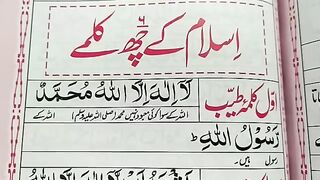 اسلام کے ۶ چھ کلمے
اوّل کلمۂ طیّب لَا اِلٰهَ اِلَّا اللهُ مُحَمَّدٌ
اللہ کے سوا کوئی معبود نہیں محمد (صلی اللہ علیہ وسلم) اللہ کے
رَّسُوْلُ اللهِ ؕ
رسول ہیں۔